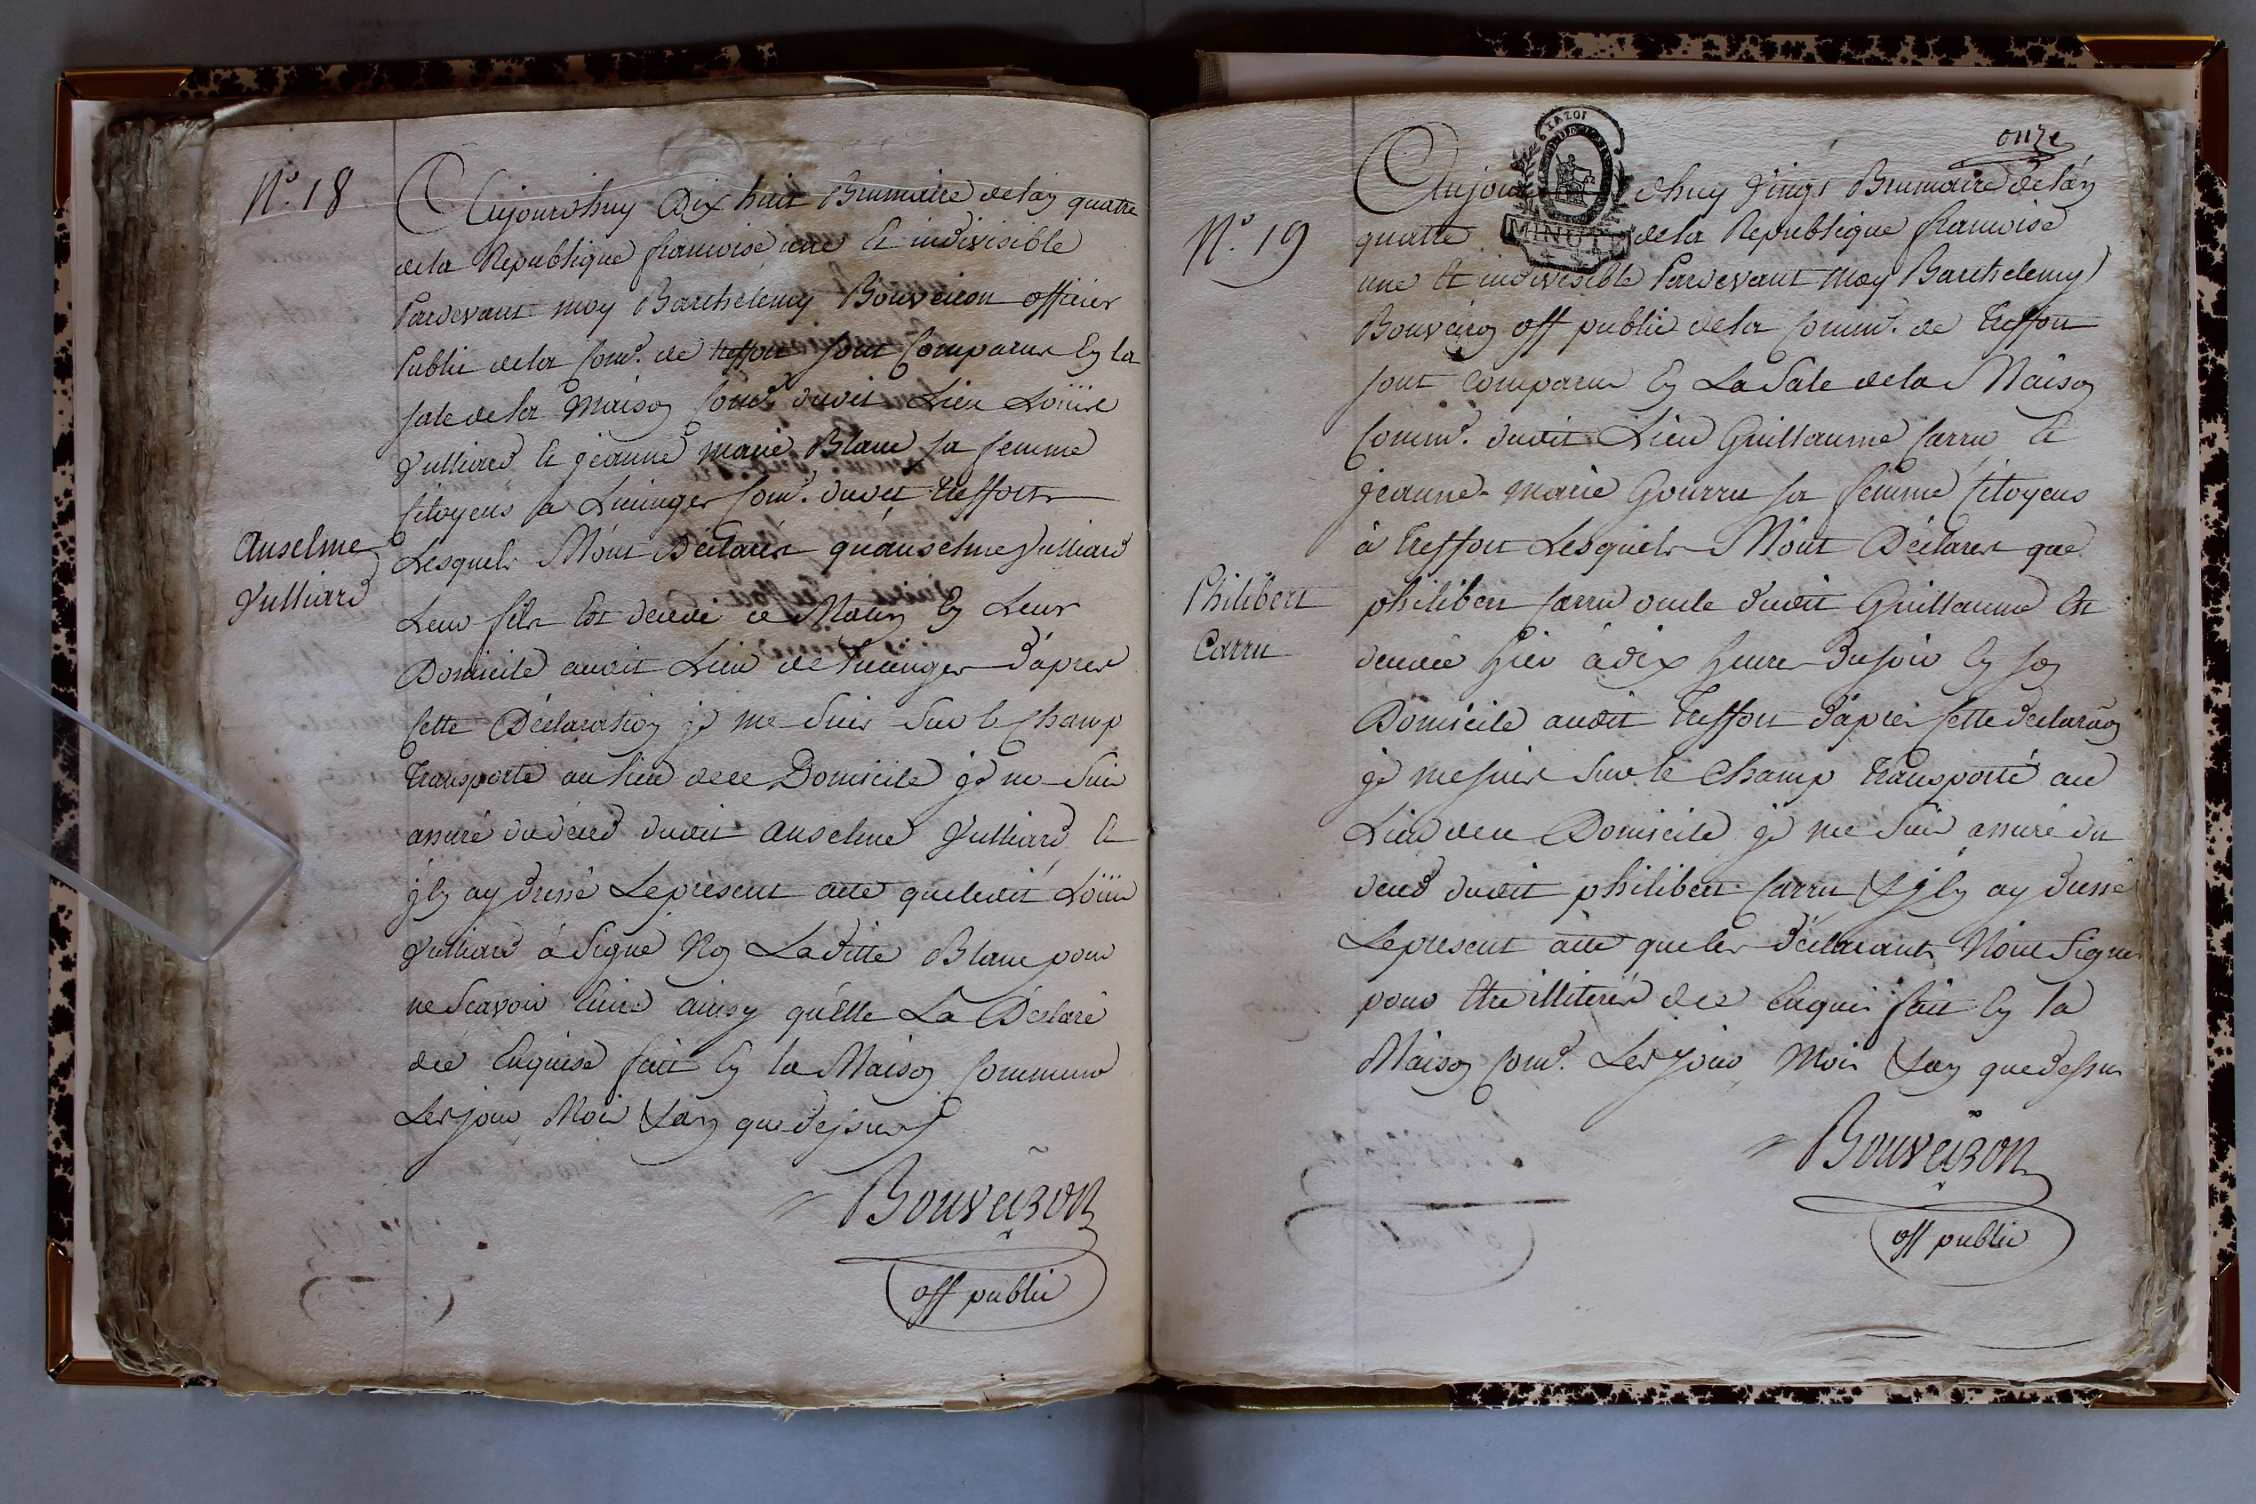 N.° 18
Aujourdhuy Dix huit Brumaire delan quatre
dela Republique francoise une et indivisible
Pardevant moy Barthelemy Bouveiron officier
Public dela Com.e de treffort sont Comparus En la
sale dela Maison Com.e dudit Lieu Loüis
Vulliard et jeanne marie Blanc sa femme
Citoyens a Com.e dudit treffort
Anselme
Vulliard
Lesquels M'ont Déclarés qu'anselme Vulliard
Leur fils Est decedé ce Matin En Leur
Domicile audit Lieu de d'apres
Cette Déclaration je me suis sur le Champ
transporté au lieu de ce Domicile je me suis
assuré du déced dudit anselme Vulliard et
j'En ay dressé Le present acte que ledit Loüis
Vulliard à Signé Non Laditte Blanc pour
ne Scavoir Ecrire ainsy qu'Elle La Déclaré
de ce Enquise fait En la Maison Commune
Les jour Mois & an que dessus
Bouveiron
off public
onze
MINUTE
N.° 19
Aujourdhuy Vingt Brumaire de lan
quatre dela Republique francoise
une et indivisible Pardevant moy Barthelemy
Bouveiron off public dela Comm.e de treffort
sont comparus En La Sale dela Maison
Comm.e dudit Lieu Guillaume Carru et
jeanne-marie Gourru sa femme Citoyens
à treffort Lesquels M'ont Déclarés que
Philibert
Carru
philibert Carru oncle dudit Guillaume Est
decedé hier à dix heures du soir En son
Domicile audit treffort d'apres Cette declaraõn
je me suis sur le Champ transporté au
Lieu de ce Domicile je me suis assuré du
deced dudit philibert Carru & j'En ay dressé
Le present acte que les déclarants N'ont Signés
pour Etre illiterés de ce Enquis fait En la
Maison Com.e Les jour Mois & an que dessus
Bouveiron
off public